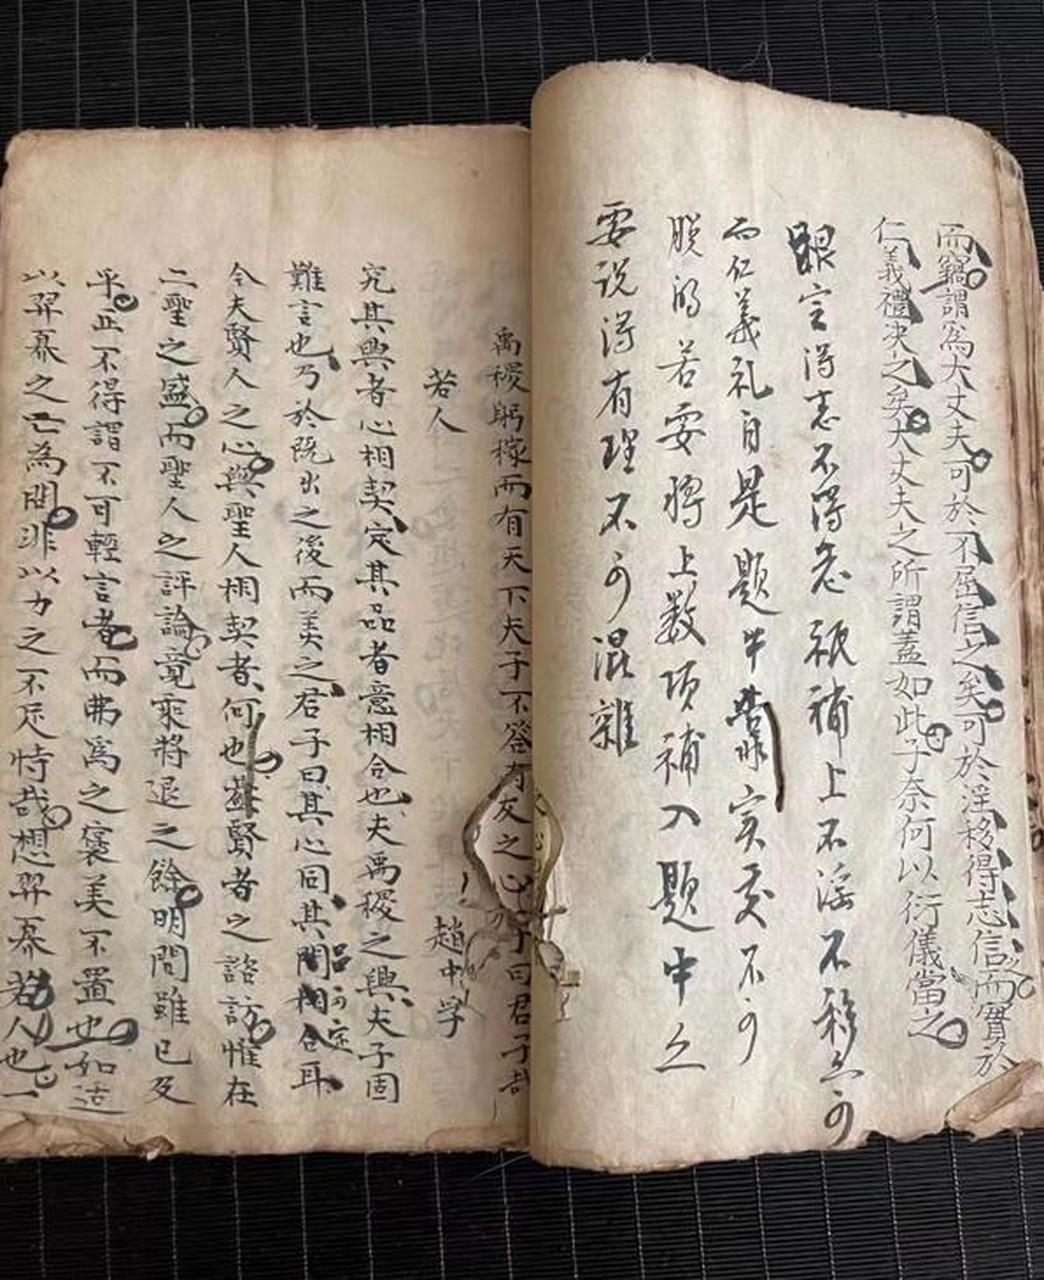 而竊謂為大丈夫可於不屈信之矣可於淫移得志信之而實於
仁義禮決之矣大丈夫之所謂蓋如此子奈何以衍儀當之
眼定得志不得志補上不淫不移亦可
而仁義礼自是題中實不可
脫的若要將上數項補入題中亦
要説得有理不可混雜
禹稷躬稼而有天下夫子不答有友之心子曰君子哉
若人
趙中学
究其興者心相契定其品者意相合也夫禹稷之興夫子固
難言也乃於既出之後而美之君子曰其心同其問相合耳
品可定
今夫賢人之心與聖人相契者何也蓋賢者之諮訪惟在
二聖之盛而聖人之評論竟來將退之餘明問雖已及
乎正不得謂不可輕言者而弗為之褒美不置也如适
以羿奡之亡為問非以力之不足恃哉想羿奡若人也一